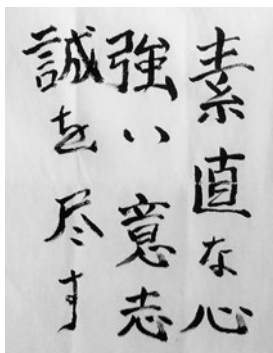 素直な心
強い意志
誠を尽す